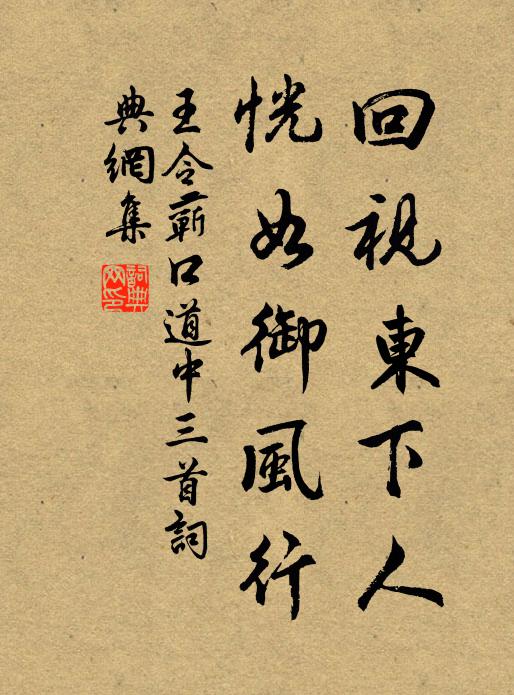 回視東下人
恍如御風行
王令蘄口道中三首詞
典網集
詞典
网印